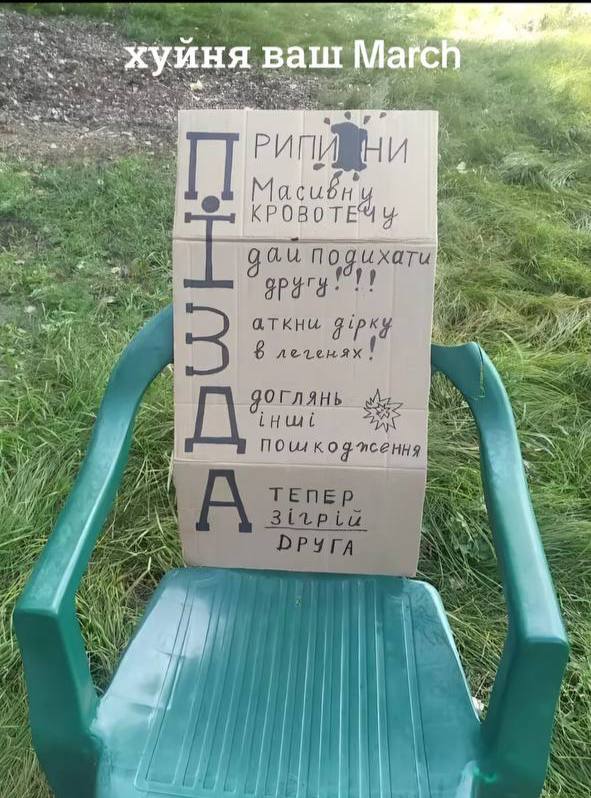 хуйня ваш March
ПРИПИНИ
Масивну
КРОВОТЕЧУ
І дай подихати
другу!!!
Заткни дірку
в легенях!
Доглянь
інші
пошкодження
А ТЕПЕР
Зігрій
ДРУГА